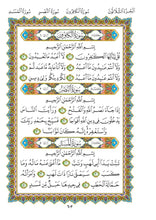 سُورَةُ الكَافِرُونَ
بِسْمِ اللَّهِ الرَّحْمَٰنِ الرَّحِيمِ
قُلْ يَا أَيُّهَا الْكَافِرُونَ ١ لَا أَعْبُدُ مَا تَعْبُدُونَ ٢
وَلَا أَنتُمْ عَابِدُونَ مَا أَعْبُدُ ٣ وَلَا أَنَا عَابِدٌ مَّا عَبَدتُّمْ ٤
وَلَا أَنتُمْ عَابِدُونَ مَا أَعْبُدُ ٥ لَكُمْ دِينُكُمْ وَلِيَ دِينِ ٦
سُورَةُ النَّصْرِ
بِسْمِ اللَّهِ الرَّحْمَٰنِ الرَّحِيمِ
إِذَا جَاءَ نَصْرُ اللَّهِ وَالْفَتْحُ ١ وَرَأَيْتَ النَّاسَ
يَدْخُلُونَ فِي دِينِ اللَّهِ أَفْوَاجًا ٢ فَسَبِّحْ بِحَمْدِ
رَبِّكَ وَاسْتَغْفِرْهُ إِنَّهُ كَانَ تَوَّابًا ٣
سُورَةُ المَسَدِ
بِسْمِ اللَّهِ الرَّحْمَٰنِ الرَّحِيمِ
تَبَّتْ يَدَا أَبِي لَهَبٍ وَتَبَّ ١ مَا أَغْنَىٰ عَنْهُ مَالُهُ وَمَا
كَسَبَ ٢ سَيَصْلَىٰ نَارًا ذَاتَ لَهَبٍ ٣ وَامْرَأَتُهُ
حَمَّالَةَ الْحَطَبِ ٤ فِي جِيدِهَا حَبْلٌ مِّن مَّسَدٍ ٥